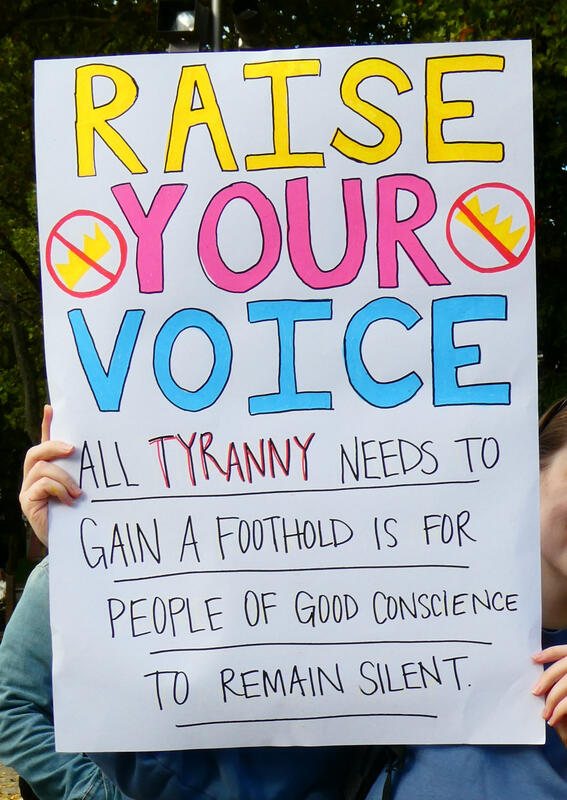 RAISE
YOUR
VOICE
ALL TYRANNY NEEDS TO
GAIN A FOOTHOLD IS FOR
PEOPLE OF GOOD CONSCIENCE
TO REMAIN SILENT.